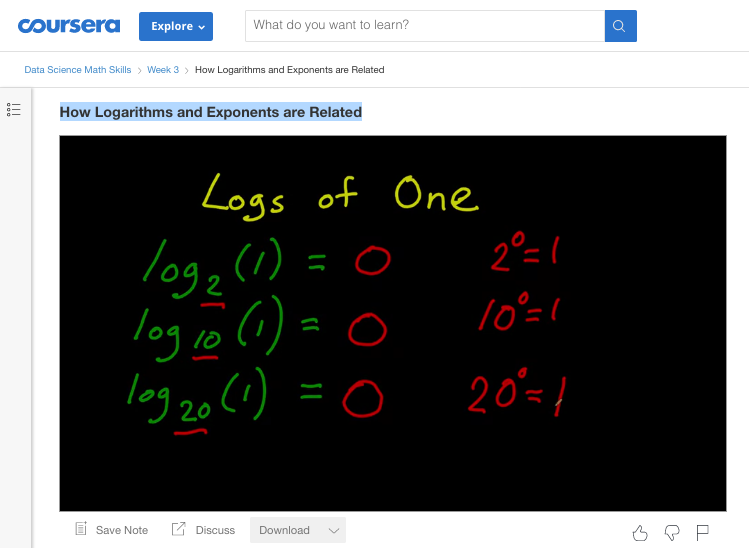 coursera Explore What do you want to learn?
Data Science Math Skills > Week 3 > How Logarithms and Exponents are Related
How Logarithms and Exponents are Related
Logs of One
log₂(1) = 0 2⁰=1
log₁₀(1) = 0 10⁰=1
log₂₀(1) = 0 20⁰=1
Save Note Discuss Download